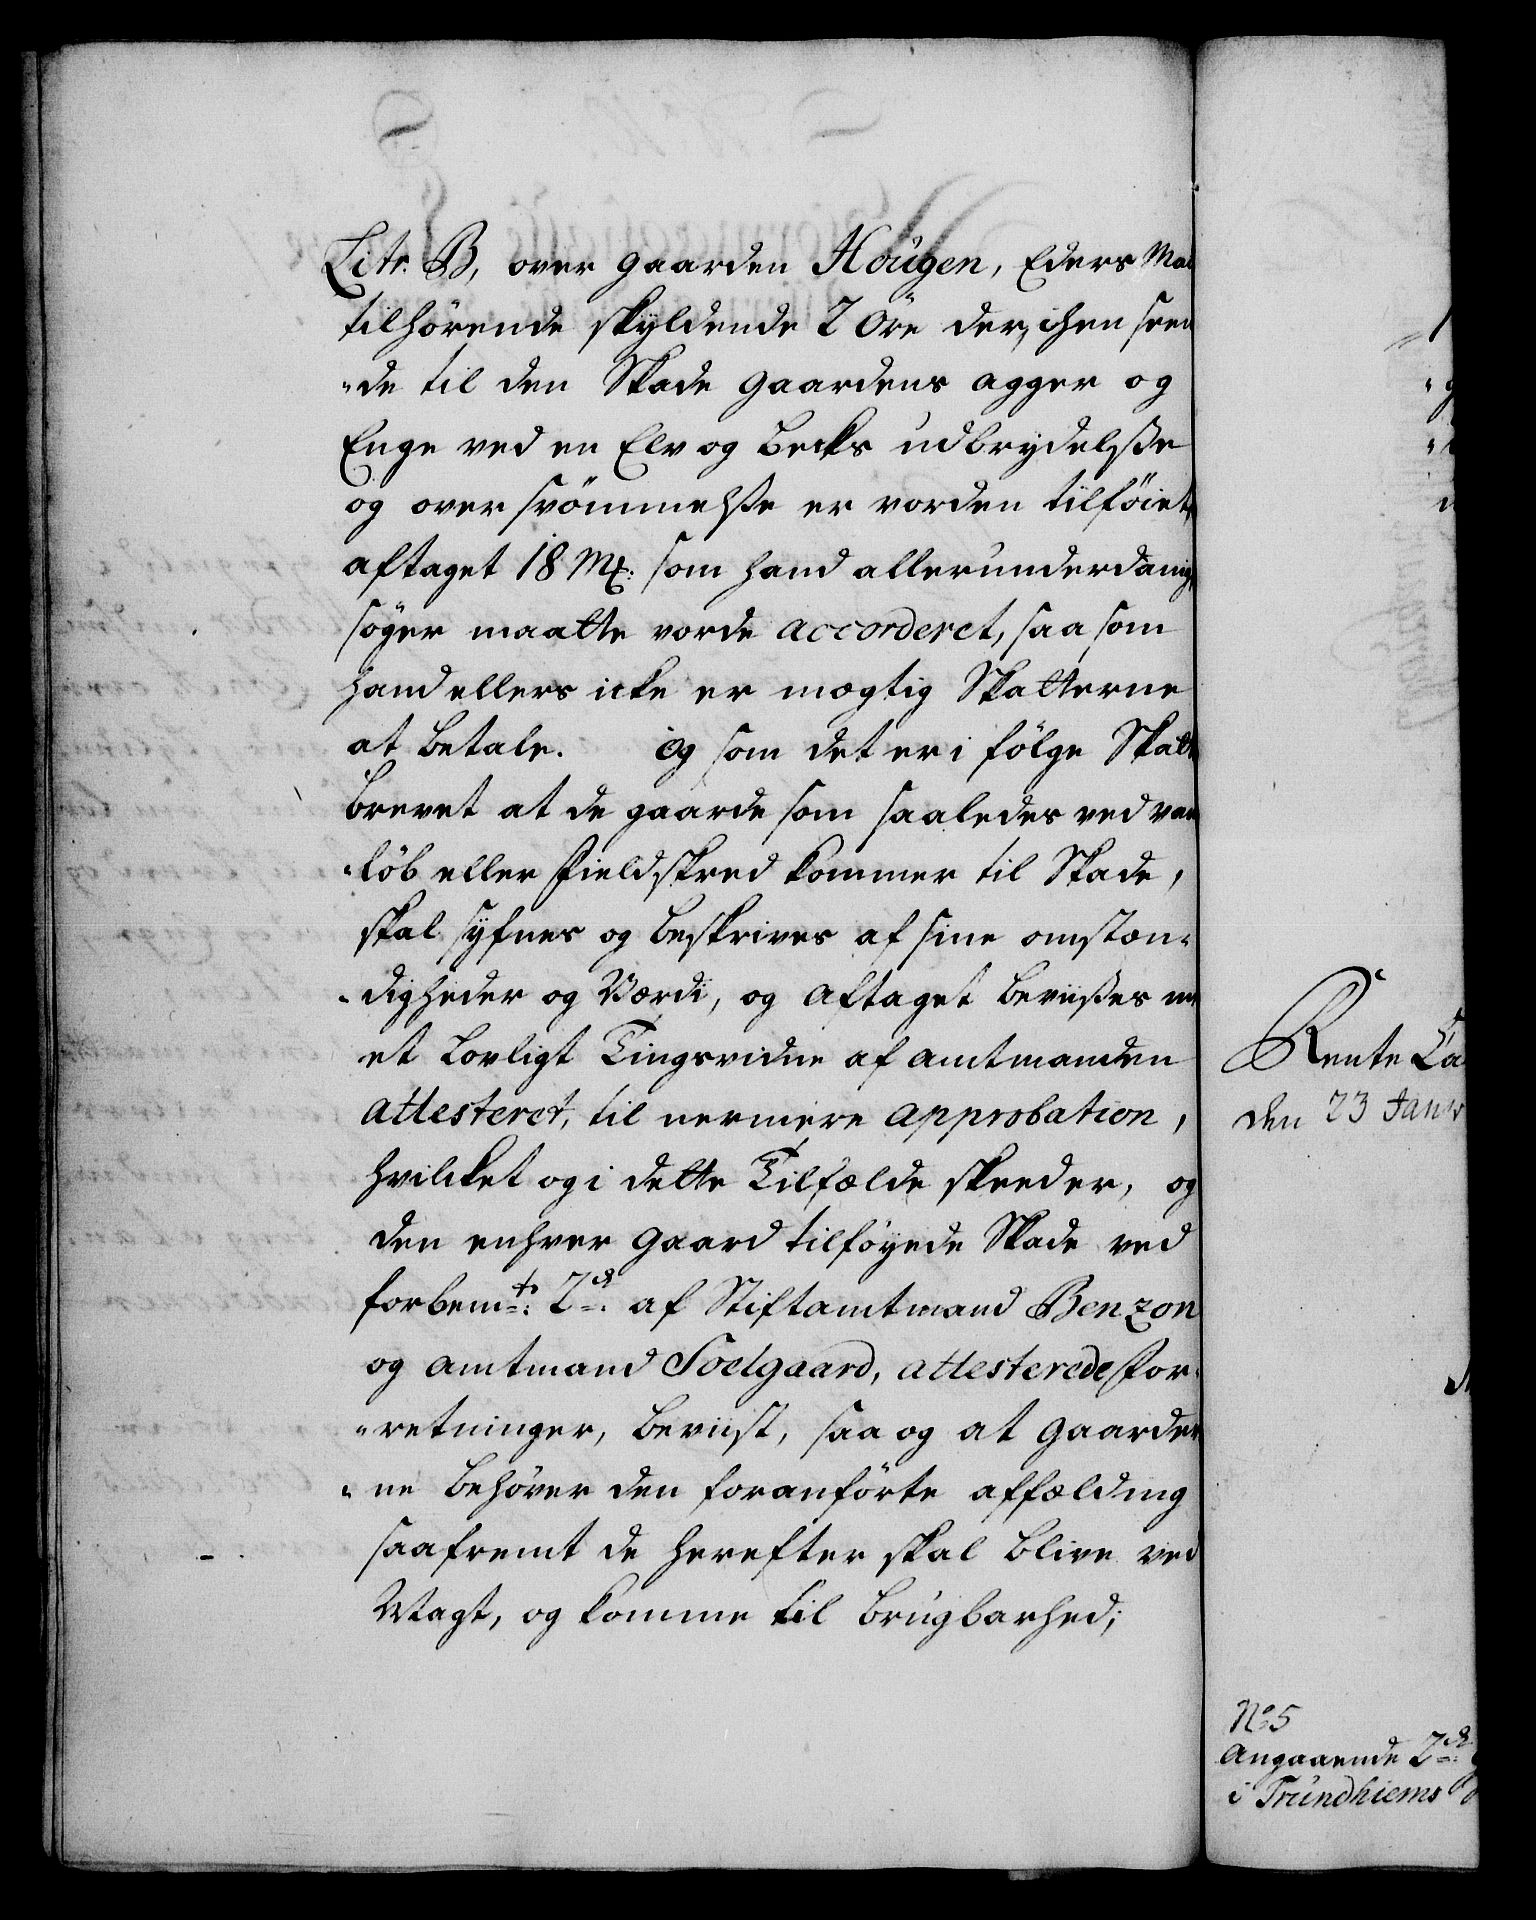 Litr. B, over gaarden Hougen, Eders Maj
tilhörende skyldende 2 öre
"de til den Skade gaardens agger og
Enge ved en Elv og becks udbrydelsße
og over svömmelsße er vorden tilföiet,
aftaget 18 Mk: som hand allerunderdanig,
söger maatte vorde accorderet, saa som
hand ellers icke er mægtig Skatterne
at betale. og som det er i fölge Skatte
brevet at de gaarde som saaledes ved van
"löb eller Fieldskred kommer til Skade,
skal syfnes og beskrives af sine omstæn"
"digheder og Værdi, og aftaget beviißes
et lovligt Tingsvidne af amtmanden
attesteret, til nermere approbation,
hvilcket og i dette Tilfælde skeeder, og
den enhver gaard tilföyede Skade ved
forbemte: 2de: af Stiftamtmand Benzon
og amtmand Soelgaard, attesterede For"
"retninger, beviist, saa og at gaarder
"ne behöver den foranförte affælding
saafremt de herefter skal blive ved
Magt, og komme til brugbarhed;
Rente Ca
den 23 Janr
No 5
Angaaende 2de:
i Trundhiems